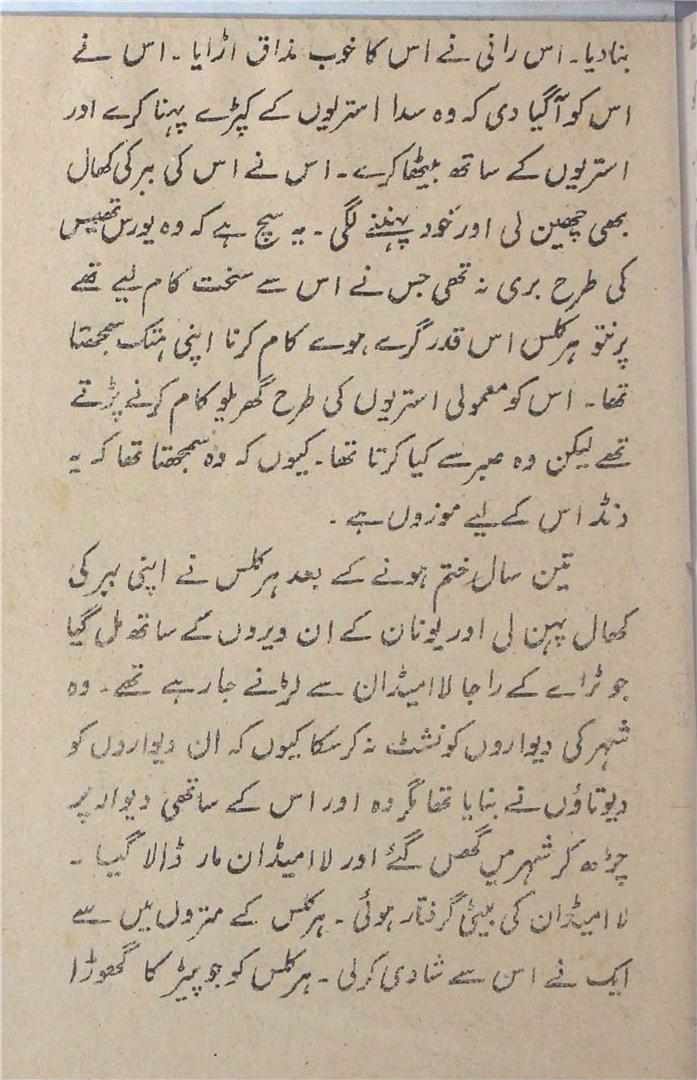 بنادیا۔ اس رانی نے اس کا خوب مذاق اڑایا۔ اس نے
اس کو آگیا دی کہ وہ سدا استریوں کے کپڑے پہنا کرے اور
استریوں کے ساتھ بیٹھا کرے۔ اس نے اس کی ببر کی کھال
بھی چھین لی اور خود پہننے لگی۔ یہ سچ ہے کہ وہ یورس تھیس
کی طرح بری نہ تھی جس نے اس سے سخت کام لیے تھے
پرنتو ہرکلس اس قدر گرے ہوے کام کرتا اپنی ہتک سمجھتا
تھا۔ اس کو معمولی استریوں کی طرح گھریلو کام کرنے پڑتے
تھے لیکن وہ صبر سے کیا کرتا تھا۔ کیوں کہ وہ سمجھتا تھا کہ یہ
دنڈ اس کے لیے موزوں ہے۔
تین سال ختم ہونے کے بعد ہرکلس نے اپنی ببر کی
کھال پہن لی اور یونان کے ان ویروں کے ساتھ مل گیا
جو ٹراے کے راجا لاامیڈان سے لڑنے جا رہے تھے۔ وہ
شہر کی دیواروں کو نشٹ نہ کر سکا کیوں کہ ان دیواروں کو
دیوتاؤں نے بنایا تھا مگر وہ اور اس کے ساتھی دیوار پر
چڑھ کر شہر میں گھس گئے اور لاامیڈان مار ڈالا گیا۔
لاامیڈان کی بیٹی گرفتار ہوئی۔ ہرکلس کے متروں میں سے
ایک نے اس سے شادی کرلی۔ ہرکلس کو جوپیٹر کا گھوڑا